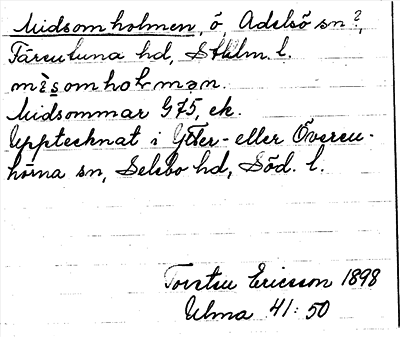 Midsomholmen, ö, Adelsö sn?,
Färentuna hd, Sthlm. l.
mìsomhoḷmən.
Midsommar G75, ek.
Upptecknat i Ytter- eller Överen-
hörna sn, Selebo hd, Söd. l.
Torsten Ericsson 1898
Ulma 41:50